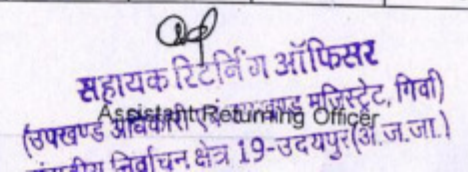 सहायक रिटर्निंग ऑफिसर
Assistant Returning Officer
(उपखण्ड अधिकारी एवं उपखण्ड मजिस्ट्रेट, गिर्वा)
संसदीय निर्वाचन क्षेत्र 19-उदयपुर(अ.ज.जा.)